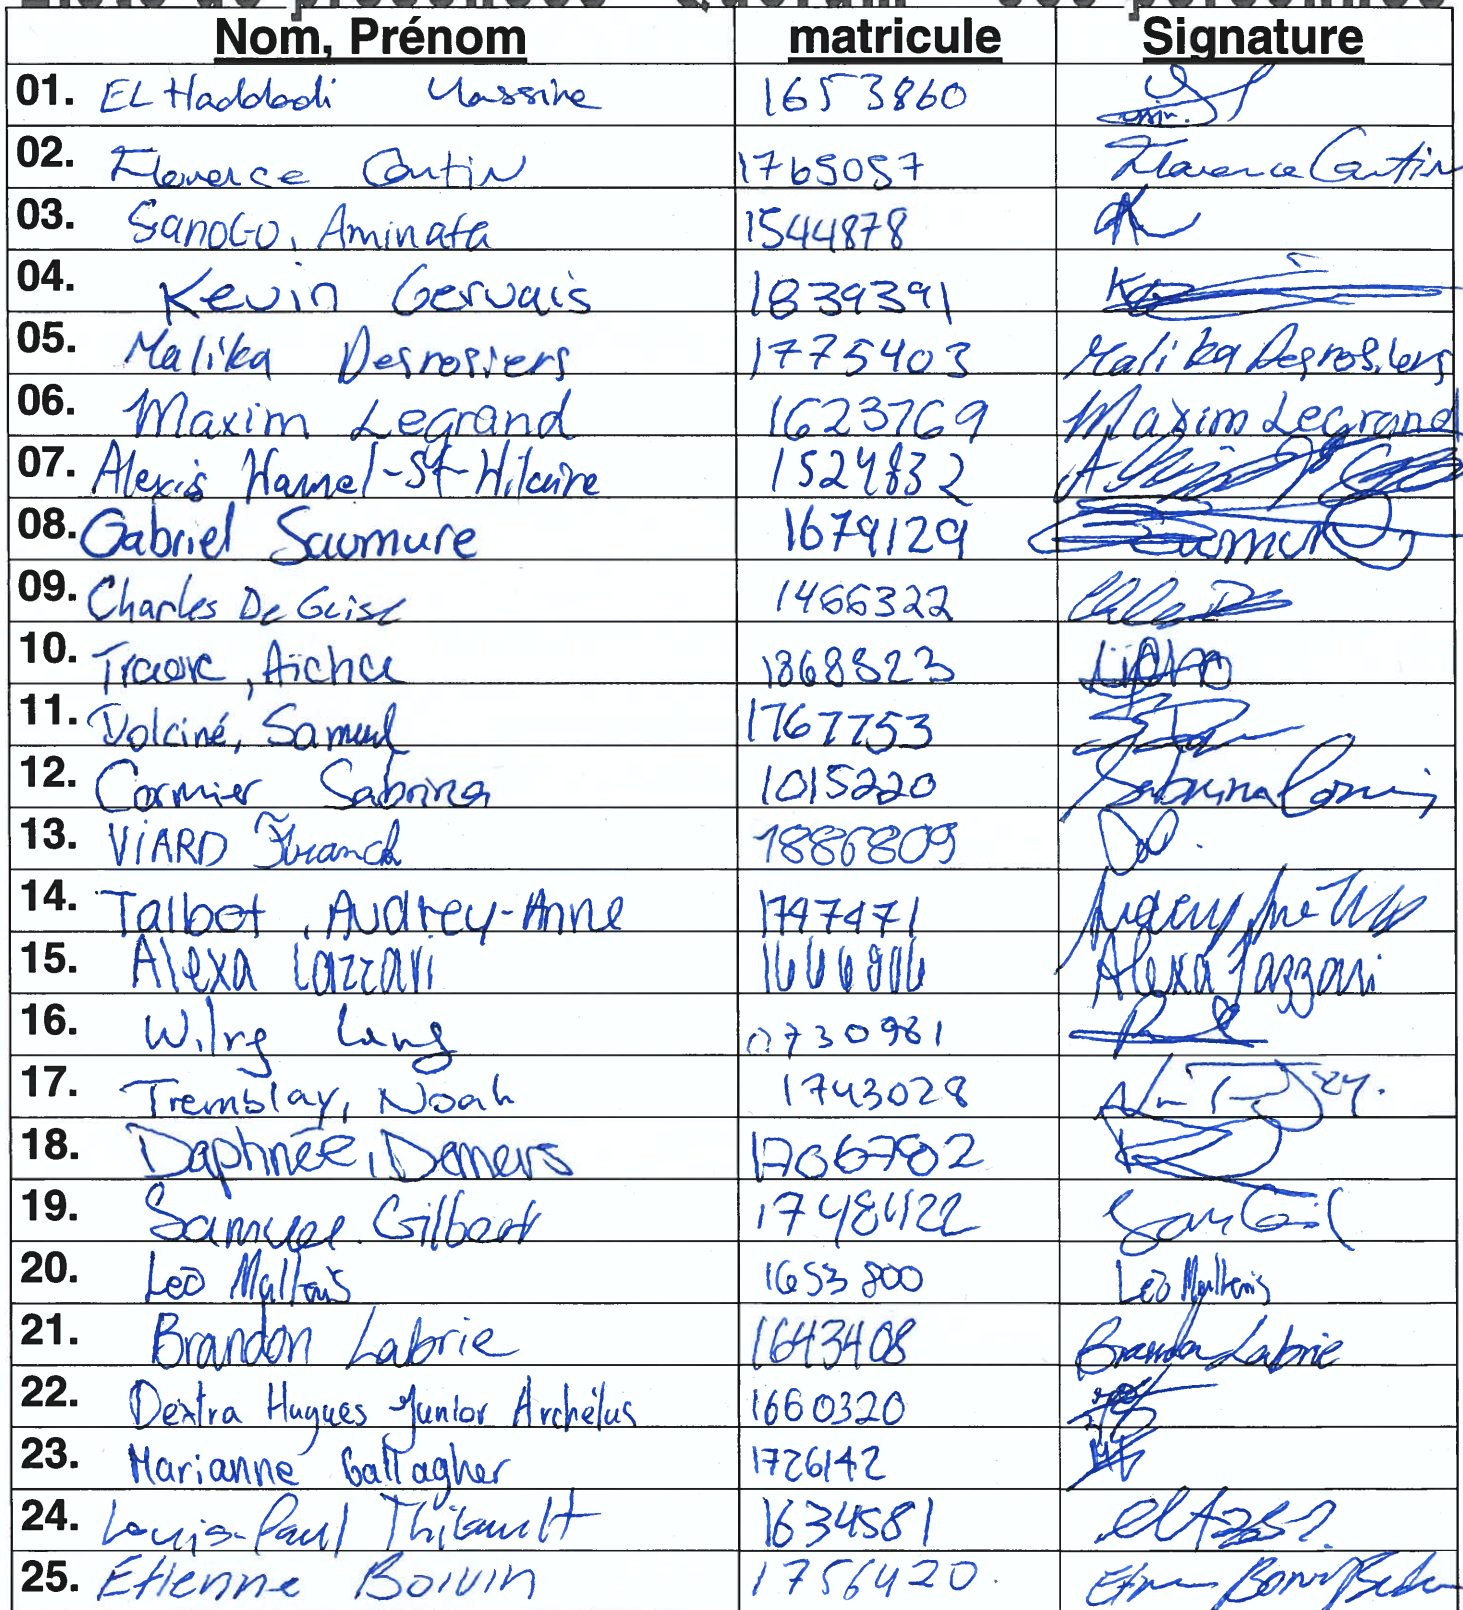 Nom, Prénom matricule Signature
01. EL Haddadi Yassine 1653860
02. Florence Cantin 1765057 Florence Cantin
03. SANOGO, Aminata 1544878
04. Kevin Gervais 1839391
05. Malika Desrosiers 1775403 Malika Desrosiers
06. Maxim Legrand 1623769 Maxim Legrand
07. Alexis Hamel-St-Hilaire 1524832
08. Gabriel Saumure 1679129
09. Charles De Guise 1466322
10. Traore, Aïcha 1868823
11. Dolciné, Samuel 1767753
12. Cormier Sabrina 1015220
13. VIARD Franck 1886809
14. Talbot, Audrey-Anne 1747471
15. Alexa Lazzari Alexa Lazzari
16. 0730981
17. Tremblay, Noah 1743028
18. Daphnée, Demers 1706702
19. Samuel Gilbert 1748422
20. Léo Maltais 1653800 Léo Maltais
21. Brandon Labrie 1643408 Brandon Labrie
22. Dextra Hugues Junior Archélus 1660320
23. Marianne Gallagher 1726142
24. Louis-Paul Thibault 1634581
25. Etienne Boivin 1756420